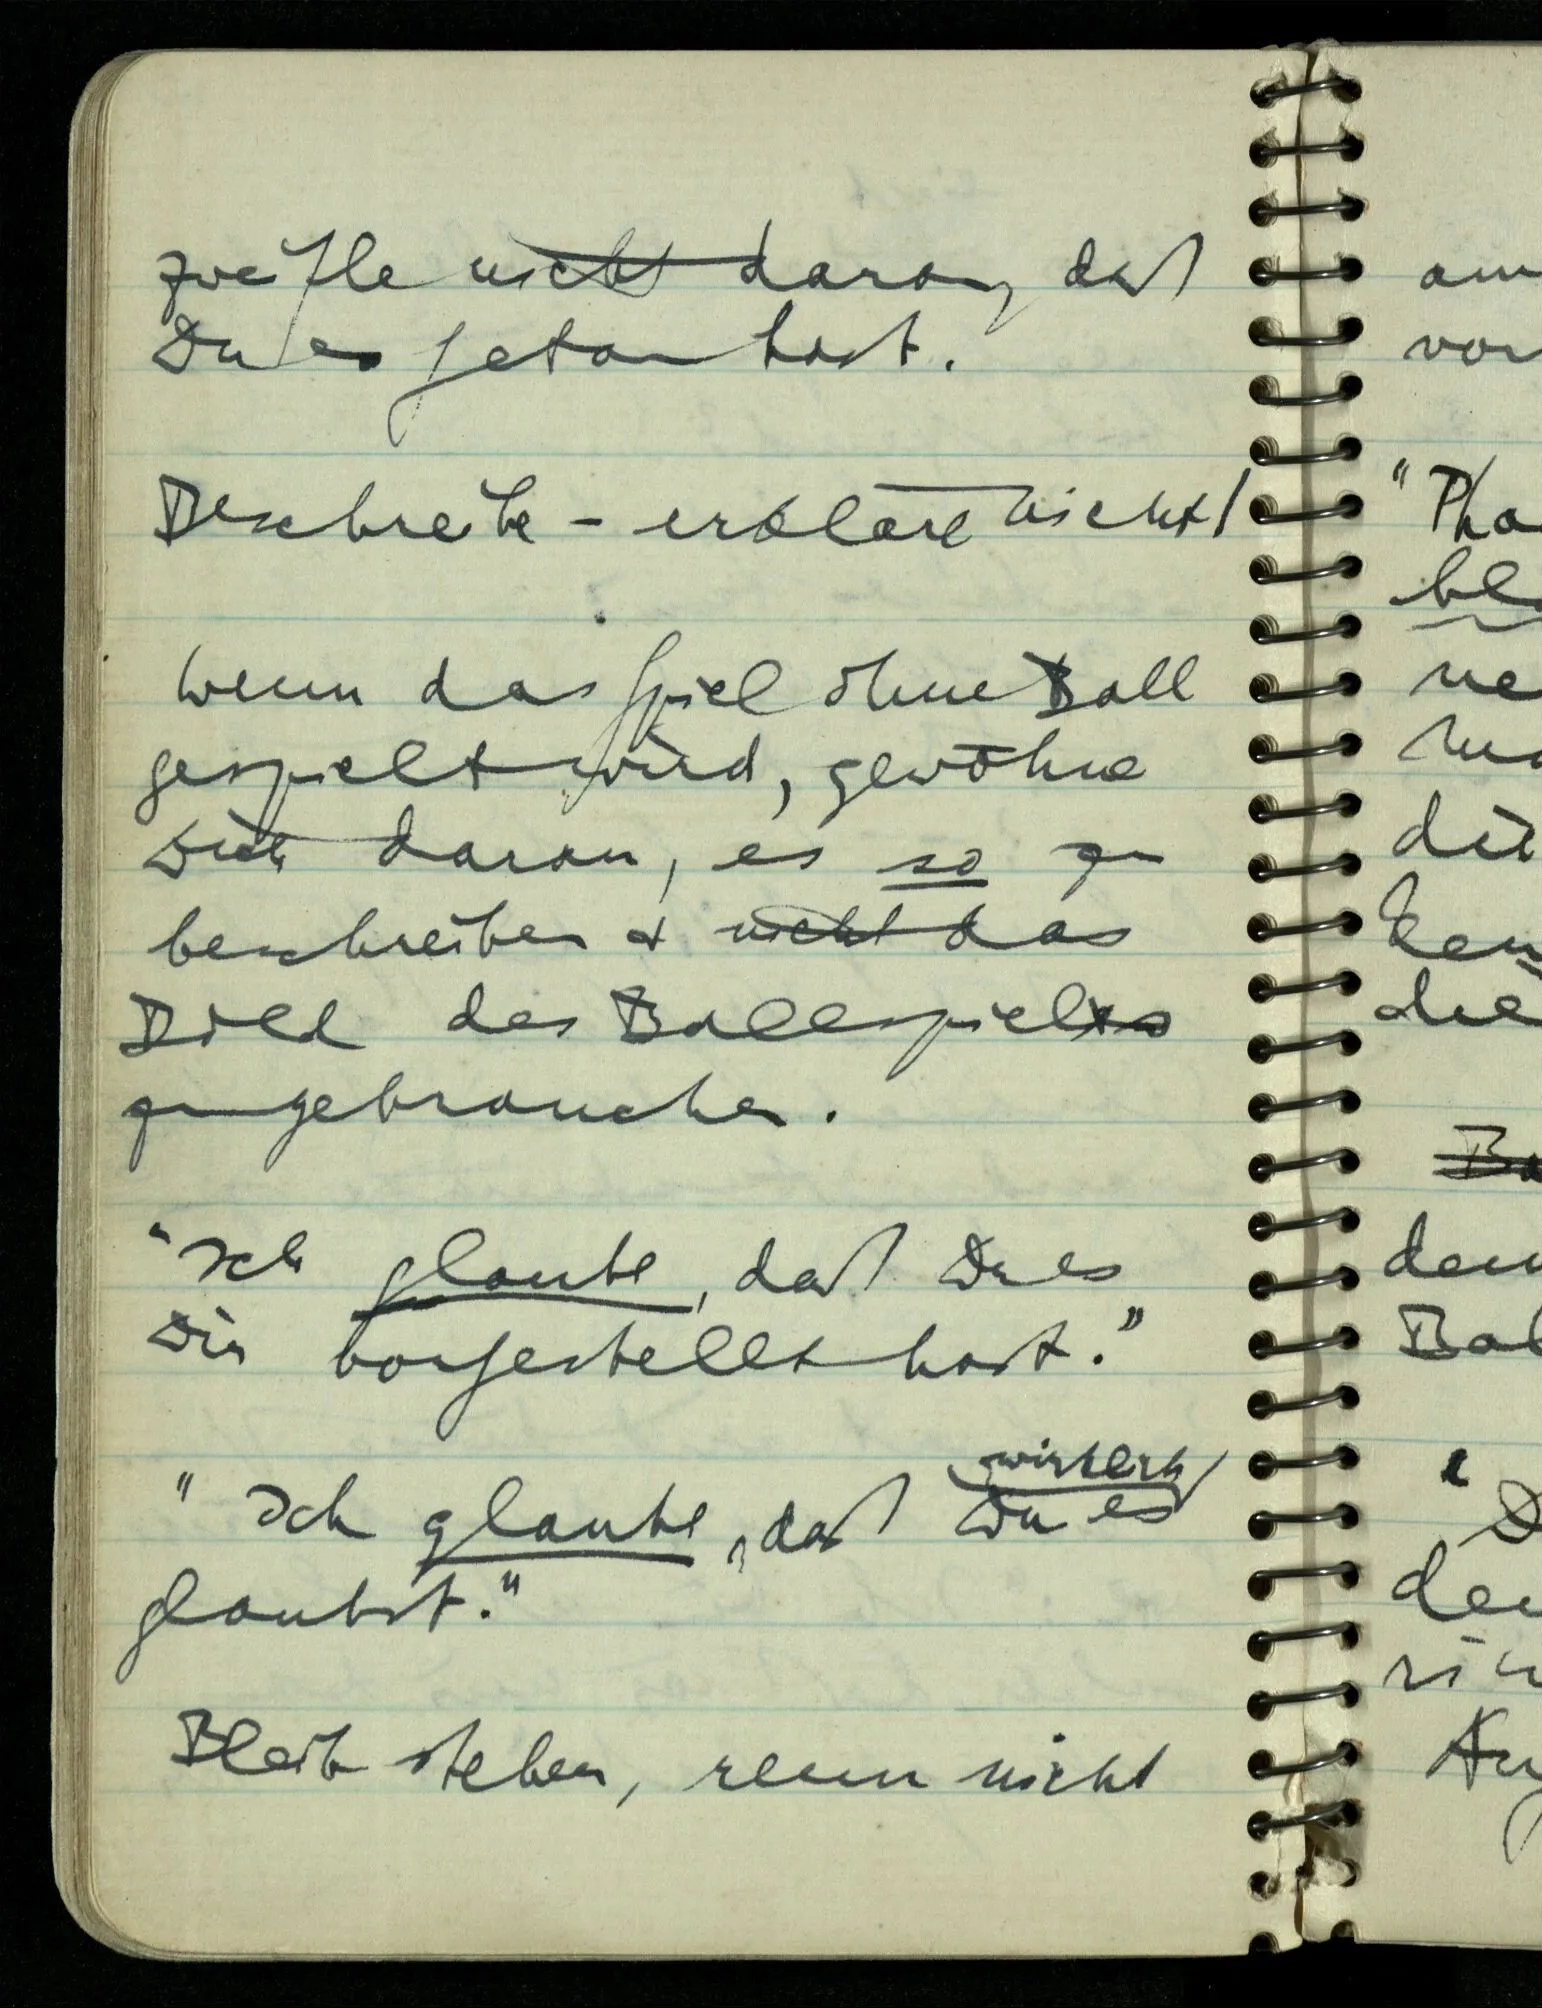 zweifle nicht daran, daß
Du es getan hast.
Beschreibe – erkläre nicht!
Wenn das Spiel ohne Ball
gespielt wird, gewöhne
Dich daran, es so zu
beschreiben & nicht das
Bild des Ballspiels
zu gebrauchen.
"Ich glaube, daß Du es
Dir vorgestellt hast."
wirklich
"Ich glaube, daß Du es
glaubst."
Bleib stehen, renn nicht
am
vor
"Pha
ne
die
die
Ba
Bal